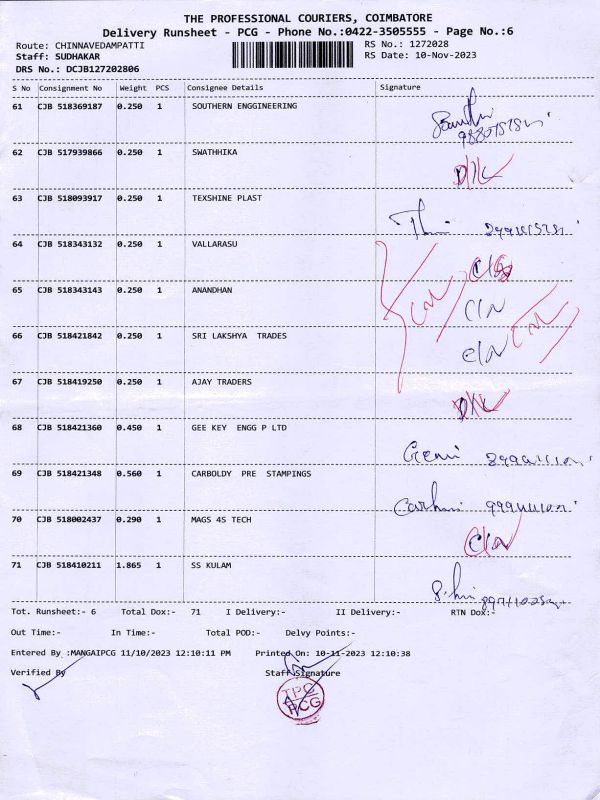 THE PROFESSIONAL COURIERS, COIMBATORE
Delivery Runsheet - PCG - Phone No.:0422-3505555 - Page No.:6
Route: CHINNAVEDAMPATTI RS No.: 1272028
Staff: SUDHAKAR RS Date: 10-Nov-2023
DRS No.: DCJB127202806
S No Consignment No Weight PCS Consignee Details Signature
61 CJB 518369187 0.250 1 SOUTHERN ENGGINEERING
62 CJB 517939866 0.250 1 SWATHHIKA D/L
63 CJB 518093917 0.250 1 TEXSHINE PLAST
64 CJB 518343132 0.250 1 VALLARASU
65 CJB 518343143 0.250 1 ANANDHAN C/N
66 CJB 518421842 0.250 1 SRI LAKSHYA TRADES C/N
67 CJB 518419250 0.250 1 AJAY TRADERS D/L
68 CJB 518421360 0.450 1 GEE KEY ENGG P LTD
69 CJB 518421348 0.560 1 CARBOLDY PRE STAMPINGS
70 CJB 518002437 0.290 1 MAGS 4S TECH C/N
71 CJB 518410211 1.865 1 SS KULAM
Tot. Runsheet:- 6 Total Dox:- 71 I Delivery:- II Delivery:- RTN Dox:-
Out Time:- In Time:- Total POD:- Delvy Points:-
Entered By :MANGAIPCG 11/10/2023 12:10:11 PM Printed On: 10-11-2023 12:10:38
Verified By Staff Signature
TPC
PCG